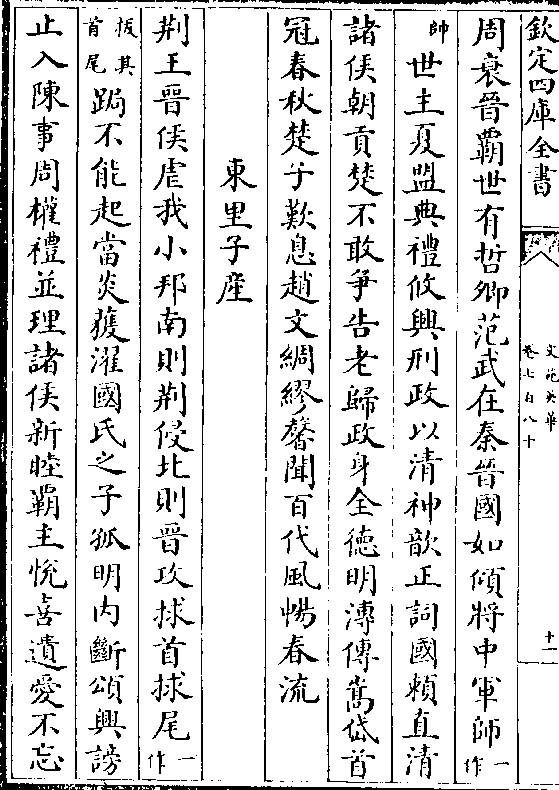 欽定四庫全書
文苑英華
卷七百八十
十一
周衰晉霸世有哲卿范武在秦晉國如傾將中軍師一作
帥世主夏盟典禮攸興刑政以清神歆正詞國賴直清
諸侯朝貢楚不敢爭告老歸政身全徳明溥傳嵩岱首
冠春秋楚子歎息趙文綢繆馨聞百代風暢春流
東里子産
荆王晉侯虐我小邦南則荆侵北則晉攻捄首捄尾一作
拔其首尾跼不能起當炎獲濯國氏之子孤明内斷頌興謗
止入陳事周權禮並理諸侯新睦霸主悅喜遺愛不忘